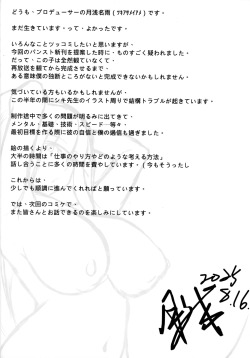 どうも、プロデューサーの月浪名雨(ﾂｷﾅﾐﾅｱﾒ)です。
まだ生きています、って、よかったです。
いろんなことツッコミしたいと思いますが、
今回のパンスト新刊を提案した時に、ものすごく疑われました。
だって、この子は全然観ていなくて、
再放送を観てから完成させるまで、
ある意味僕の独断のところとして完成できたかもしれません。
気づいている方もいるかもしれませんが、
この半年の間にシキ先生のイラスト周りで結構トラブルが起きています。
制作途中で多くの問題が明るみに出てきて、
メンタル・基礎・技術・スピード…等々、
最初目標を作る際に彼の自信と僕の通信も過ぎました。
絵の描くより、
大半の時間は「仕事のやり方やどのような考える方法」
話し合うことに長い時間を費やしています、(今もそうったし
これからは、
少しでも順調に進んでくれればと願っています。
では、次回のコミケで、
また皆さんとお話できるのを楽しみにしています。
2025
8.16.